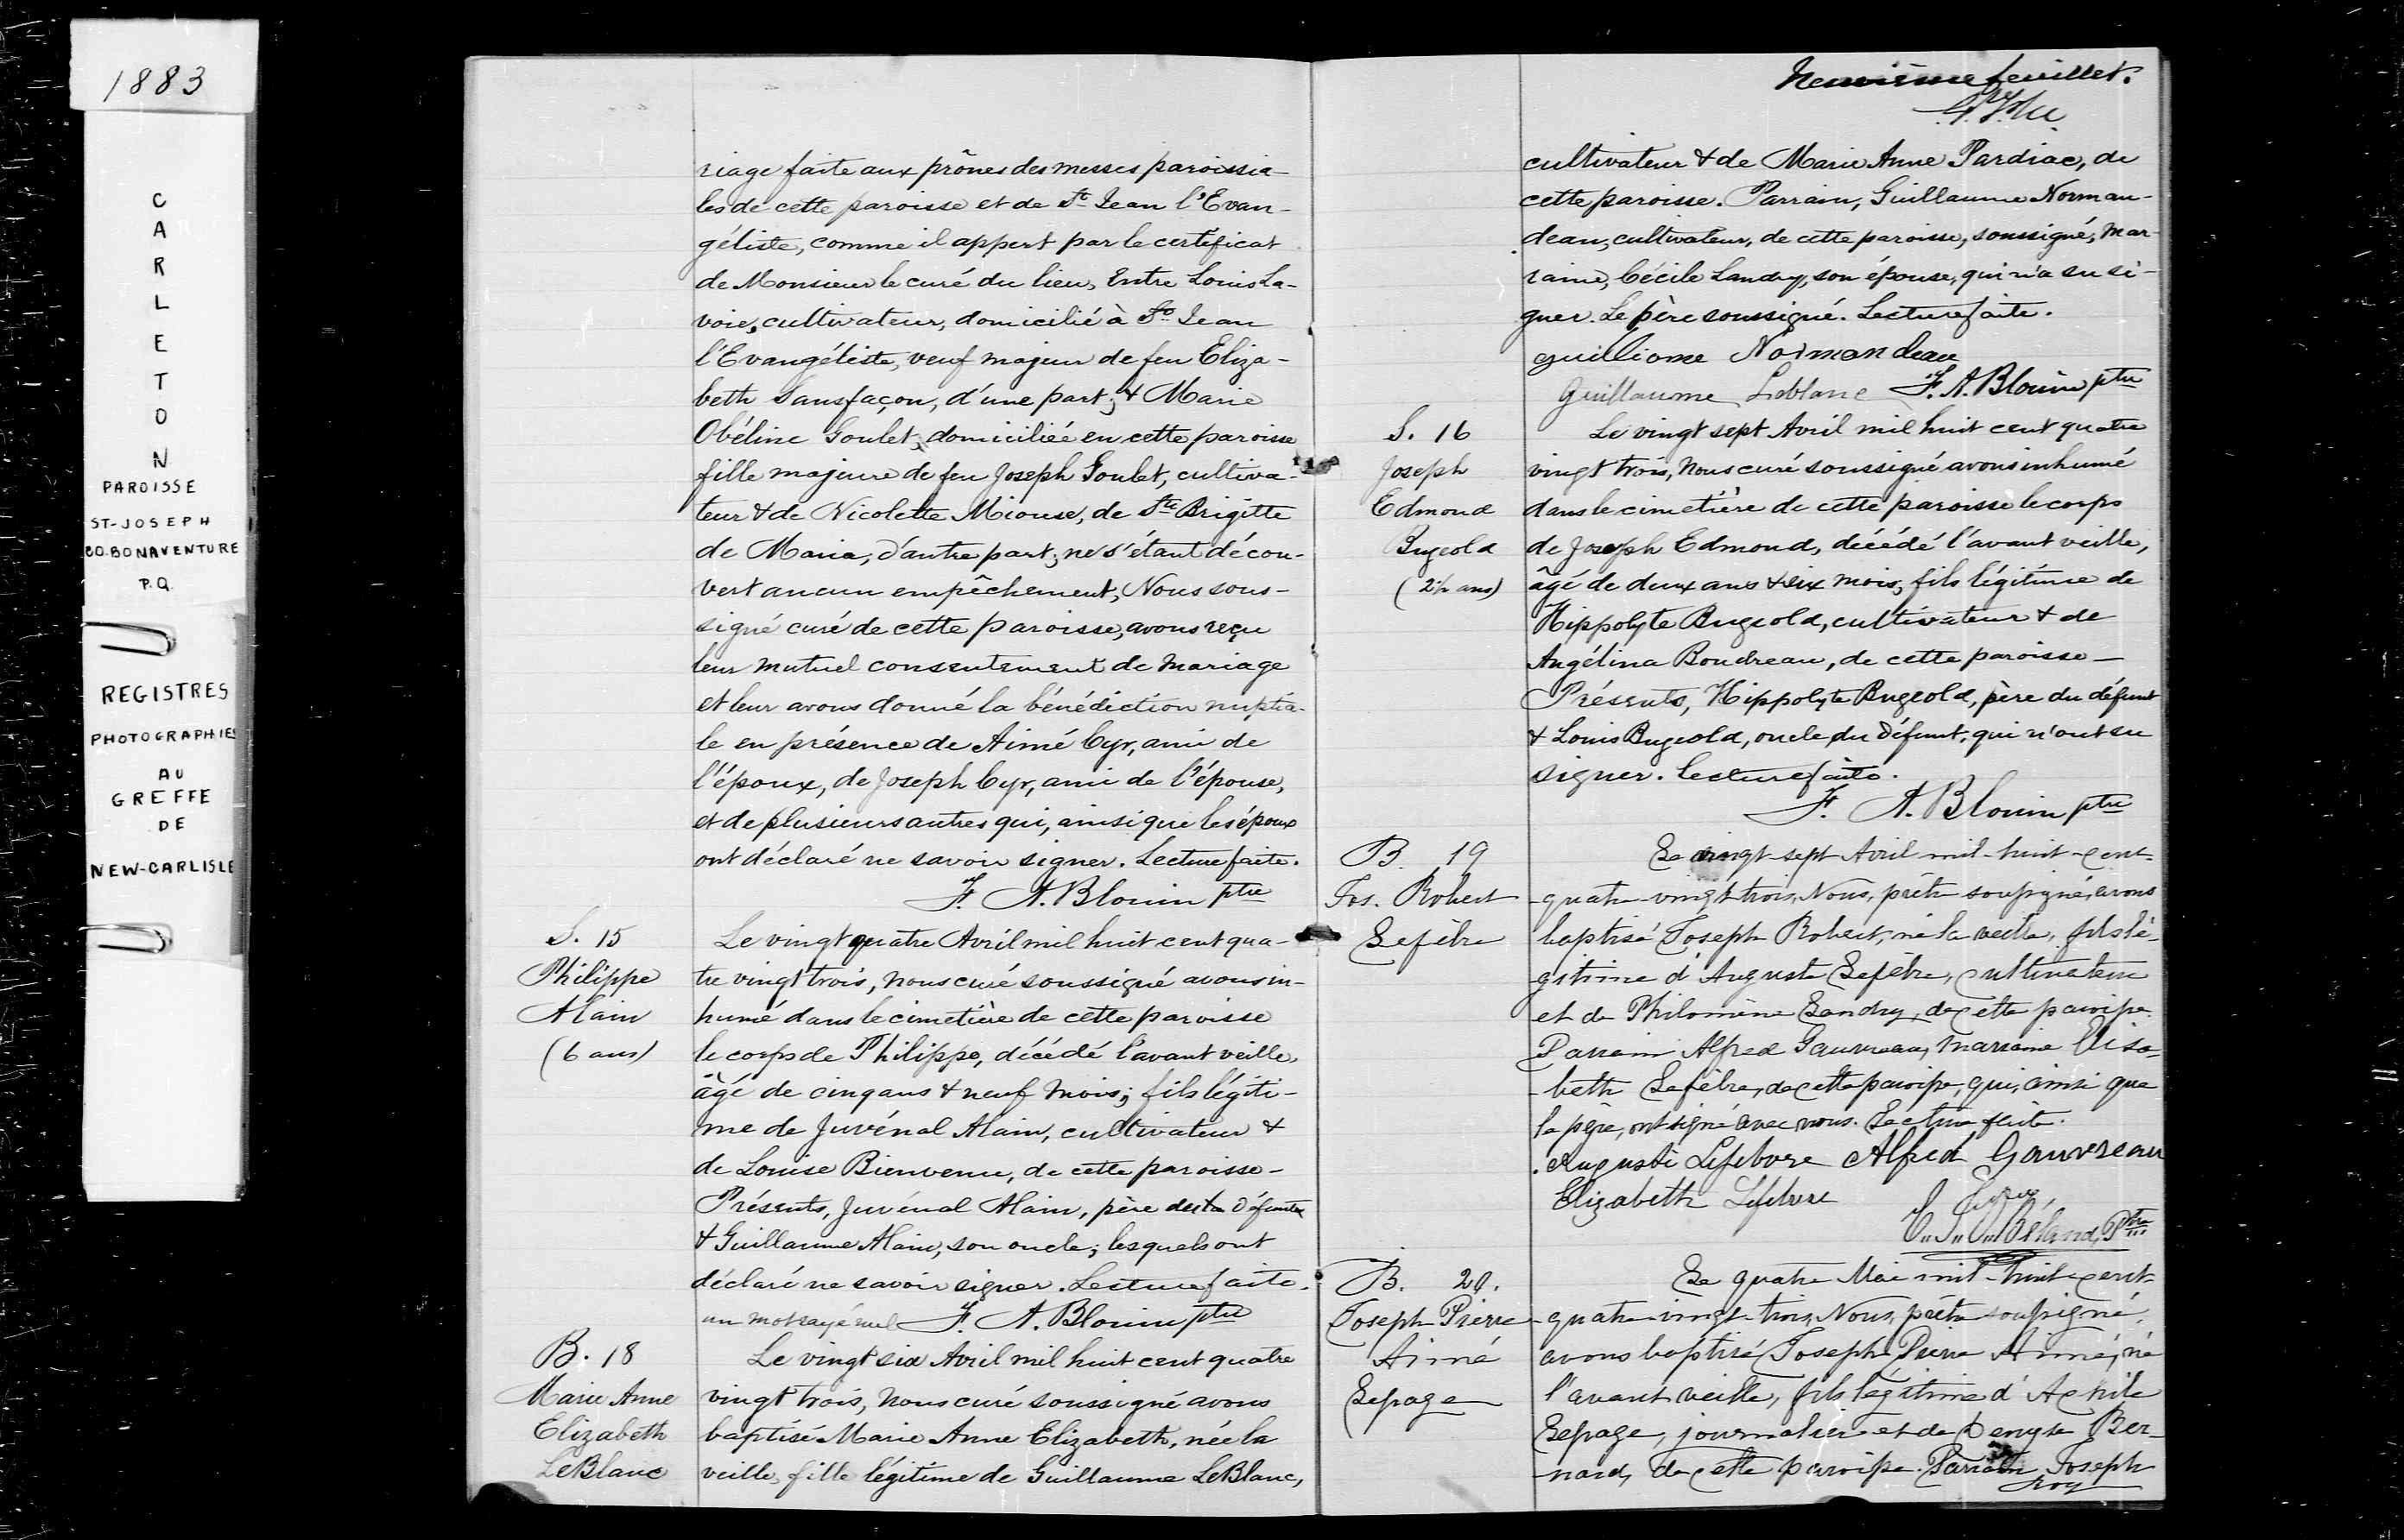 1883
CARLETON
PAROISSE
ST-JOSEPH
CO. BONAVENTURE
P.Q.
REGISTRES
PHOTOGRAPHIES
AU
GREFFE
DE
NEW-CARLISLE
riage faite aux prônes des messes paroissia-
les de cette paroisse et de St Jean l'Evan-
géliste, comme il appert par le certificat
de Monsieur le curé du lieu, Entre Louis La-
voie, cultivateur, domicilié à St Jean
l'Evangéliste, veuf majeur de feu Eliza-
beth Sansfaçon, d'une part; & Marie
Obéline Goulet, domiciliée en cette paroisse
fille majeure de feu Joseph Goulet, cultiva-
teur & de Nicolette Miouse, de Ste Brigitte
de Maria, d'autre part; ne s'étant décou-
vert aucun empêchement, Nous sous-
signé curé de cette paroisse, avons reçu
leur mutuel consentement de mariage
et leur avons donné la bénédiction nuptia-
le en présence de Aimé Cyr, ami de
l'époux, de Joseph Cyr, ami de l'épouse,
et de plusieurs autres qui, ainsi que les époux
ont déclaré ne savoir signer. Lecture faite.
F. A. Blouin ptre
S. 15
Philippe
Alain
(6 ans)
Le vingt quatre Avril mil huit cent qua-
tre vingt trois, nous curé soussigné avons in-
humé dans le cimetière de cette paroisse
le corps de Philippe, décédé l'avant veille,
âgé de cinq ans & neuf mois; fils légiti-
me de Juvénal Alain, cultivateur &
de Louise Bienvenue, de cette paroisse-
Présents, Juvénal Alain, père du défunt
& Guillaume Alain, son oncle; lesquels ont
déclaré ne savoir signer. Lecture faite.
un mot rayé nul F. A. Blouin ptre
B. 18
Marie Anne
Elizabeth
LeBlanc
Le vingt six Avril mil huit cent quatre
vingt trois, nous curé soussigné avons
baptisé Marie Anne Elizabeth, née la
veille, fille légitime de Guillaume LeBlanc,
Neuvième feuillet.
cultivateur & de Marie Anne Pardiac, de
cette paroisse. Parrain, Guillaume Norman-
deau, cultivateur, de cette paroisse, soussigné; Mar-
raine, Cécile Landry, son épouse, qui n'a su si-
gner. Le père soussigné. Lecture faite.
guilliome Normandeau
Guillaume Leblanc F. A. Blouin ptre
S. 16
Joseph
Edmond
Bugeold
(2½ ans)
Le vingt sept Avril mil huit cent quatre
vingt trois, nous curé soussigné avons inhumé
dans le cimetière de cette paroisse le corps
de Joseph Edmond, décédé l'avant veille,
âgé de deux ans & six mois, fils légitime de
Hippolyte Bugeold, cultivateur & de
Angélina Boudreau, de cette paroisse-
Présents, Hippolyte Bugeold, père du défunt
& Louis Bugeold, oncle du défunt, qui n'ont su
signer. Lecture faite.
F. A. Blouin ptre
B. 19
Jos. Robert
Lefèbre
Le vingt-sept Avril mil-huit-cent-
quatre-vingt trois, Nous, prêtre soussigné, avons
baptisé Joseph Robert, né la veille, fils lé-
gitime d'Auguste Lefèbre, cultivateur
et de Philomène Landry, de cette paroisse.
Parrain Alfred Gauvreau, marraine Elisa-
beth Lefèbre, de cette paroisse, qui, ainsi que
le père, ont signé avec nous. Lecture faite.
Auguste Lefebvre Alfred Gauvreau
Elizabeth Lefebvre
Béland, Ptre
B. 20.
Joseph Pierre
Aimé
Lepage
Le quatre Mai mil-huit-cent-
quatre-vingt-trois, Nous, prêtre soussigné,
avons baptisé Joseph Pierre Aimé, né
l'avant veille, fils légitime d'Achile
Lepage, journalier et de Denyse Ber-
nard, de cette paroisse. Parrain Joseph
Roy